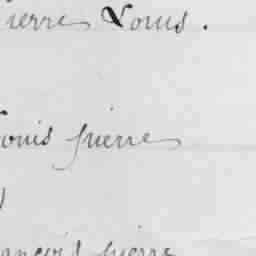 ierre Louis.
ouis pierre
ançois pierre